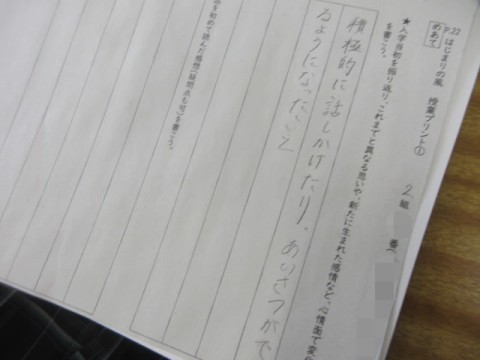 P.22 はじまりの風 授業プリント①
めあて
2組 番へ
★入学当初を振り返り、これまでと異なる思いや、新たに生まれた感情など、心情面で変化
を書こう。
積極的に話しかけたり、あいさつがで
るようになったこと
を初めて読んだ感想(疑問点も可)を書こう。